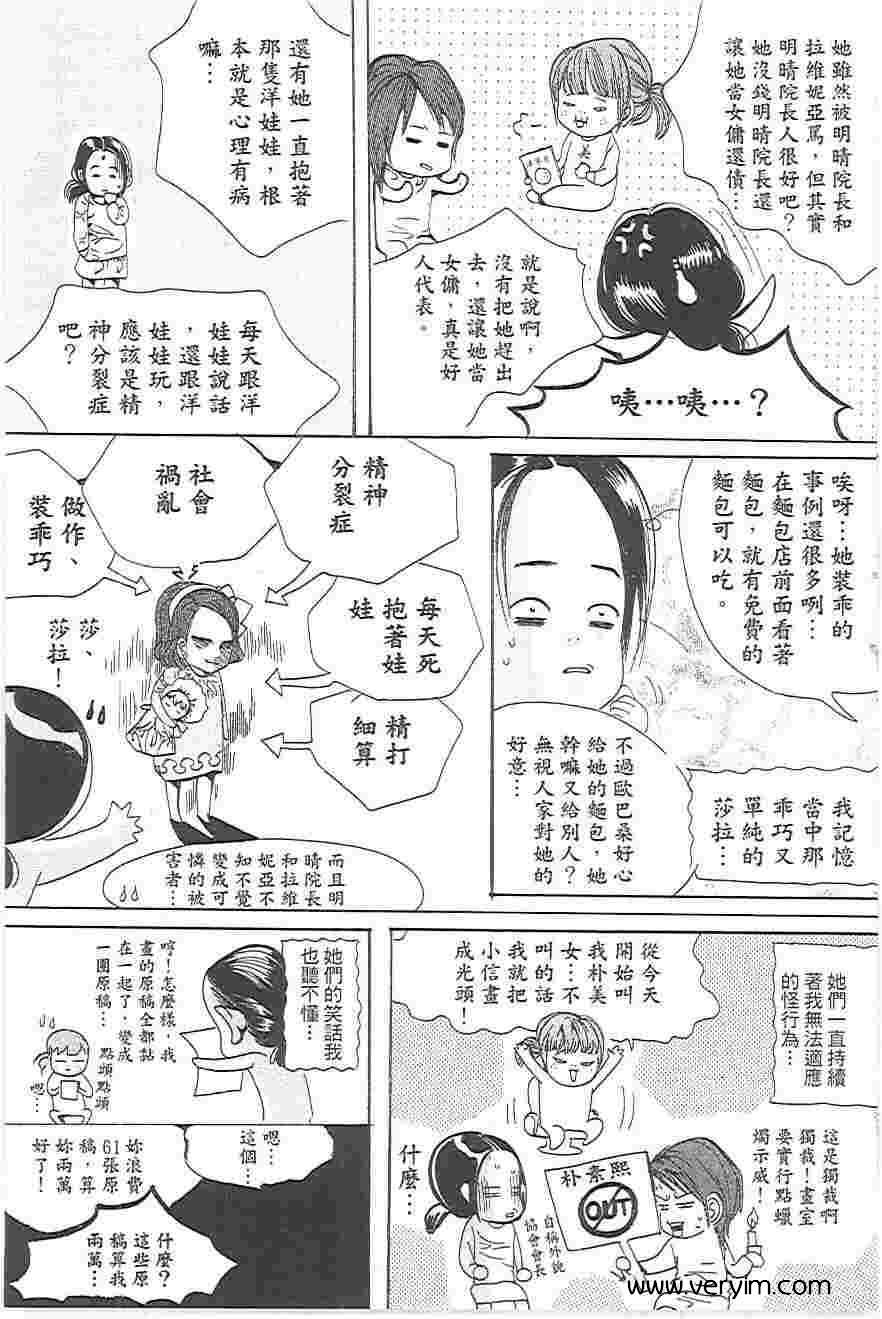 她雖然被明晴院長和
拉維妮亞罵，但其實
明晴院長人很好吧？
她沒錢明晴院長還
讓她當女傭還債…
就是說啊，
沒有把她趕出
去，還讓她當
女傭，真是好
人代表。
咦…咦…？
還有她一直抱著
那隻洋娃娃，根
本就是心理有病
嘛…
每天跟洋
娃娃說話
，還跟洋
娃娃玩，
應該是精
神分裂症
吧？
唉呀…她裝乖的
事例還很多咧…
在麵包店前面看著
麵包，就有免費的
麵包可以吃。
不過歐巴桑好心
給她的麵包，她
幹嘛又給別人？
無視人家對她的
好意…
我記憶
當中那
乖巧又
單純的
莎拉…
精神
分裂症
社會
禍亂
做作、
裝乖巧
每天死
抱著娃
娃
精打
細算
莎、
莎拉！
而且明
晴院長
和拉維
妮亞不
知不覺
變成可
憐的被
害者…
她們一直持續
著我無法適應
的怪行為…
從今天
開始叫
我朴美
女…不
叫的話
我就把
小信畫
成光頭！
這是獨裁啊
獨裁！畫室
要實行點蠟
燭示威！
朴素熙
OUT
什麼…
自稱外貌
協會會長
她們的笑話我
也聽不懂…
唷！怎麼樣，我
畫的原稿全都黏
在一起了，變成
一團原稿…
點頭點頭
嗯…
嗯…
這個…
妳浪費
61張原
稿，算
妳兩萬
好了！
什麼？
這些原
稿算我
兩萬…
www.veryim.com